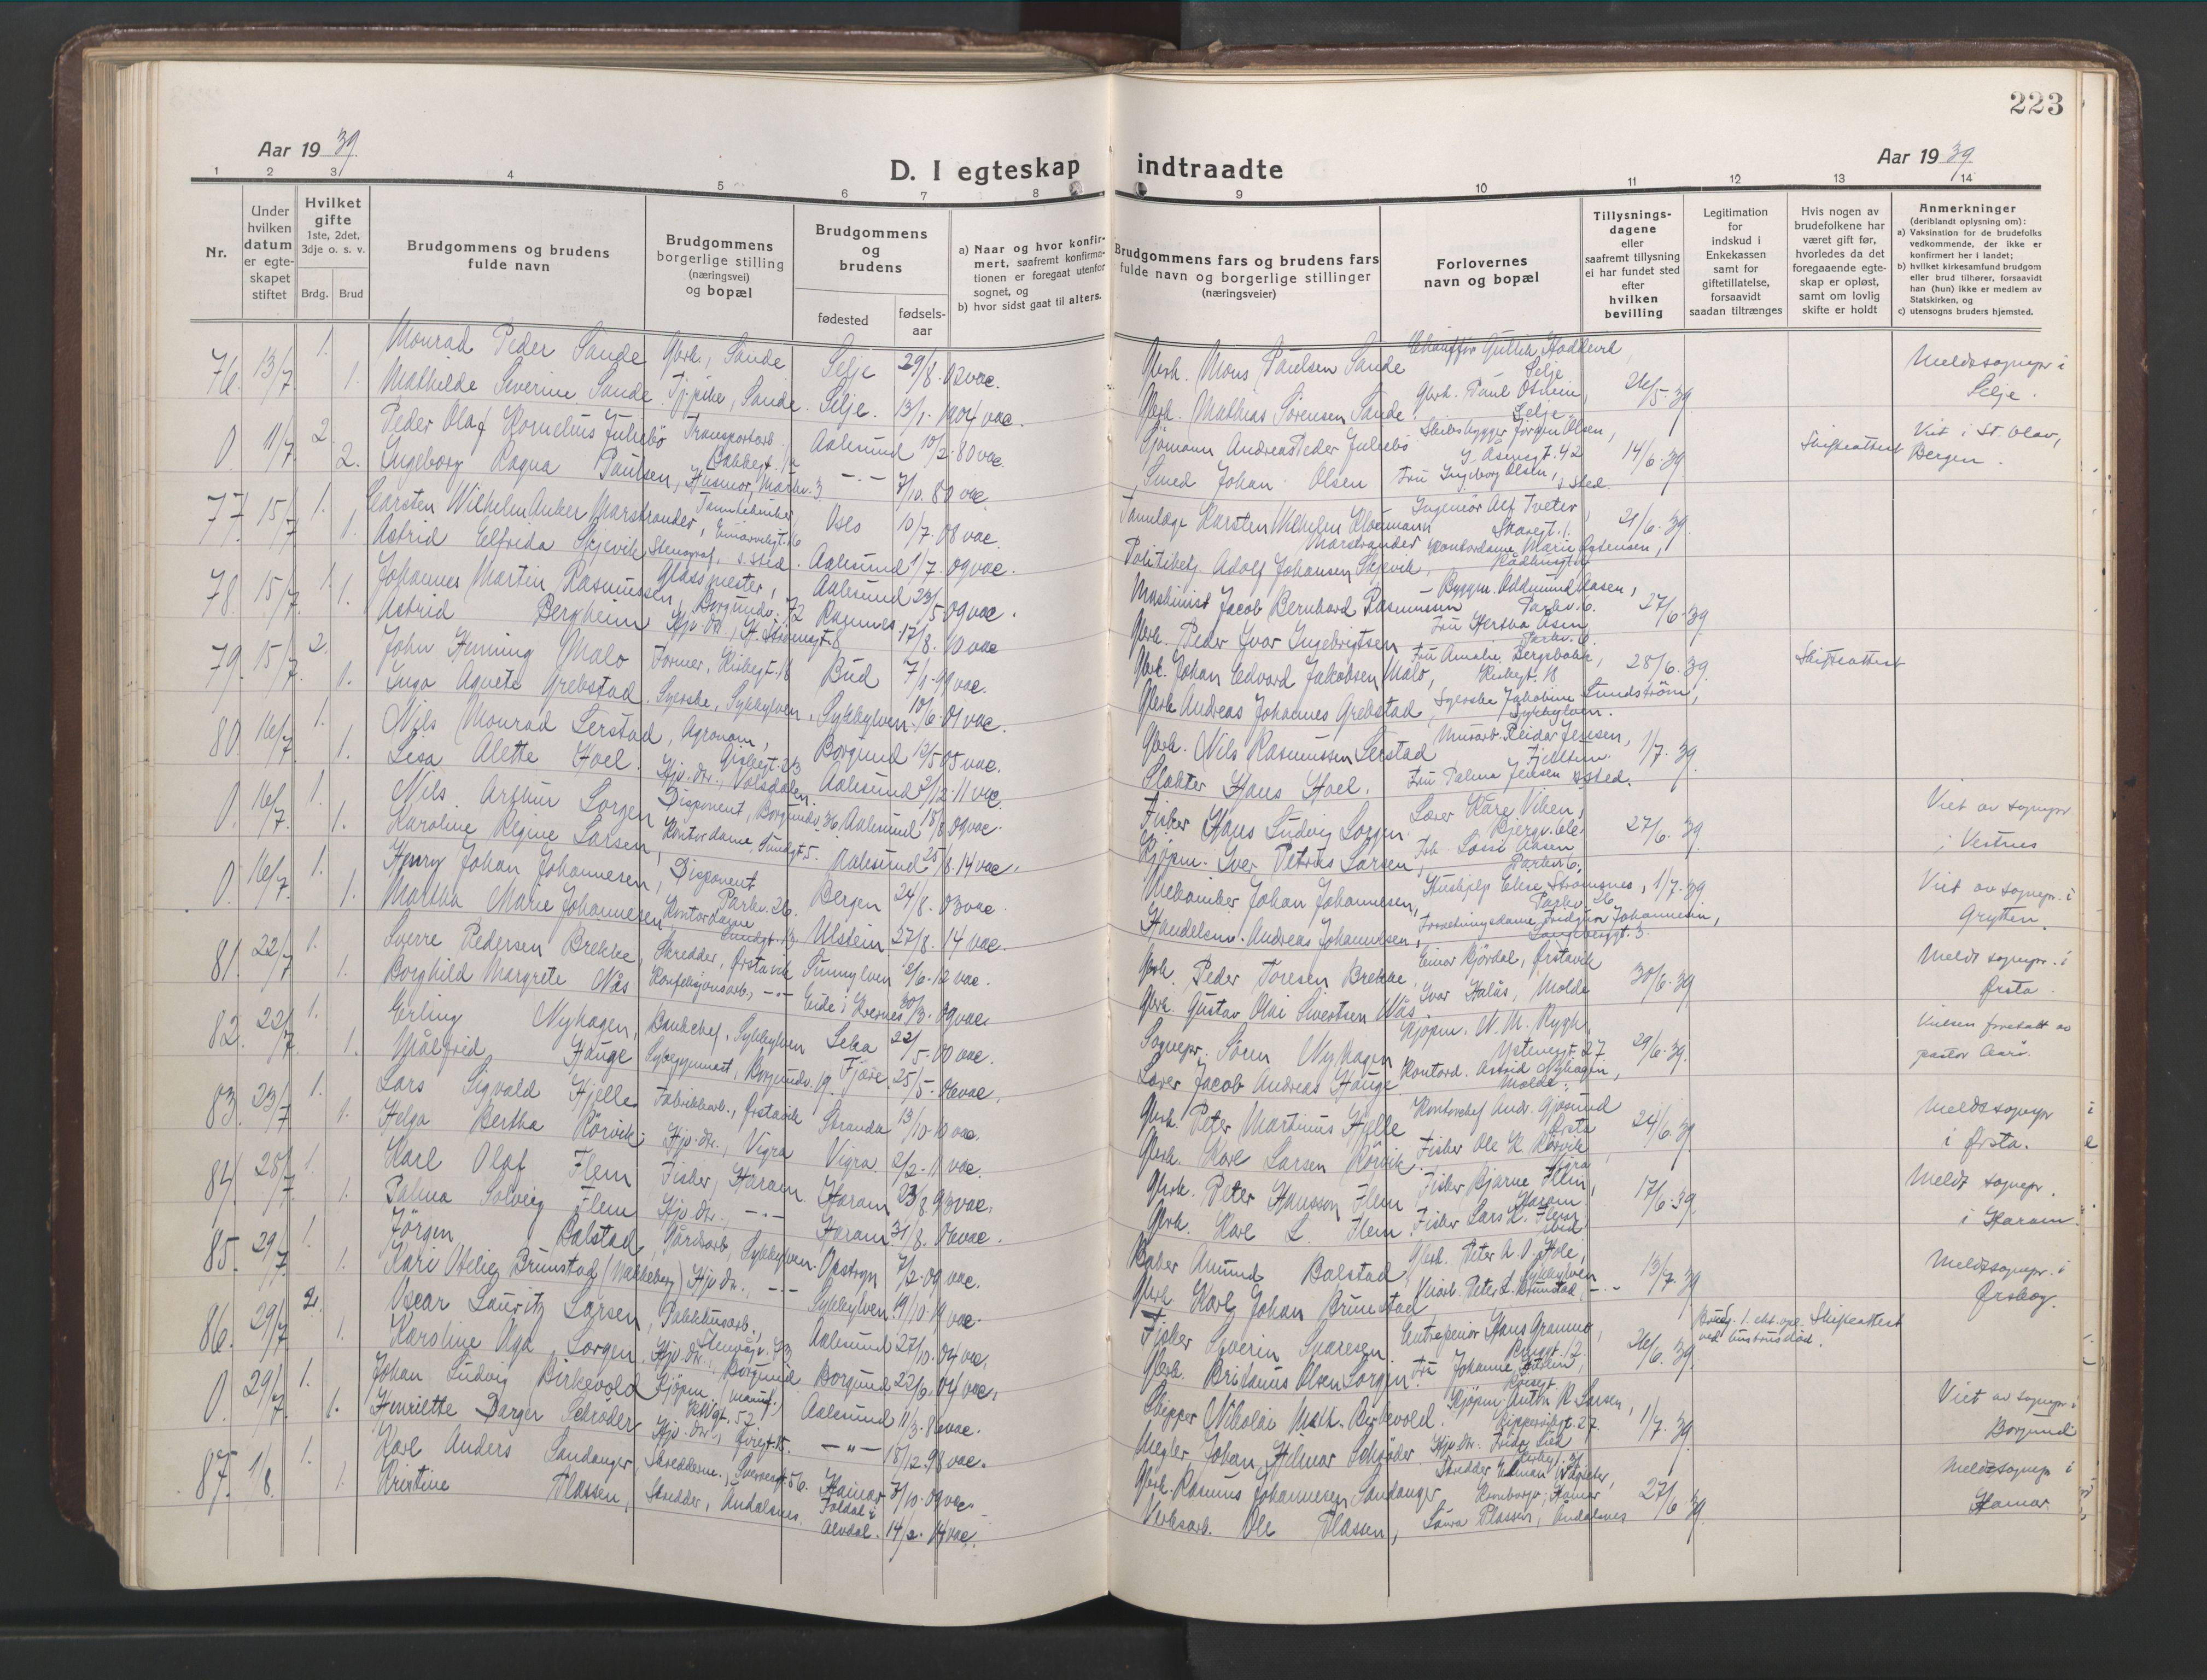 223
Aar 1939
D. I egteskap indtraadte
Aar 1939
1 2 3 4 5 6 7 8 9 10 11 12 13 14
Nr.
Under hvilken datum er egteskapet stiftet
Hvilket gifte 1ste, 2det, 3dje o. s. v.
Brdg. Brud
Brudgommens og brudens fulde navn
Brudgommens borgerlige stilling (næringsvei) og bopæl
Brudgommens og brudens
fødested
fødsels-aar
a) Naar og hvor konfirmert, saafremt konfirmationen er foregaat utenfor sognet, og
b) hvor sidst gaat til alters.
Brudgommens fars og brudens fars fulde navn og borgerlige stillinger (næringsveier)
Forlovernes navn og bopæl
Tillysningsdagene eller saafremt tillysning ei har fundet sted efter hvilken bevilling
Legitimation for indskud i Enkekassen samt for giftetillatelse, forsaavidt saadan tiltrænges
Hvis nogen av brudefolkene har været gift før, hvorledes da det foregaaende egteskap er opløst, samt om lovlig skifte er holdt
Anmerkninger (deriblandt oplysning om):
a) Vaksination for de brudefolks vedkommende, der ikke er konfirmert her i landet;
b) hvilket kirkesamfund brudgom eller brud tilhører, forsaavidt han (hun) ikke er medlem av Statskirken, og
c) utensogns bruders hjemsted.
76 13/7 1. Monrad Peder Sande Gbrk., Sande Selje 29/8.02 vac. Gbrk. Mons Paulsen Sande Selje 26/5-39 Meldt sognepr i Selje.
1. Mathilde Severine Sande Tj.pike, Sande. Selje. 13/1.1904 vac. Gbrk. Mathias Sørensen Sande. Gbrk. Paul Osheim, Selje
0 11/7 2. Peder Olaf Kornelius Julsebø Transportarb. Aalesund 10/2.80 vac. Sjømann Andreas Peder Julsebø Skibsbygger Jørgen Olsen, 14/6.39 Skifteattest Viet i St. Olav, Bergen.
2. Ingeborg Ragna Paulsen, Husmor, -"- 7/10.80 vac. Smed Johan Olsen Fru Ingeborg Olsen, s. sted.
77 15/7 1. Carsten Wilhelm Anker Marstrander, Tanntekniker Oslo 10/7.08 vac. Tannlæge Karsten Wilhelm Marstrander Ingeniør Alf Tveter, 21/6.39.
1. Astrid Elfrida Skjevik Stenograf, s. sted. Aalesund 1/7.09 vac. Politibetj. Adolf Johansen Skjevik, Kontordame Marie
78 15/7 1. Johannes Martin Rasmussen Glassmester, Borgundv. 72 Aalesund 23/5 09 vac. Maskinist Jacob Bernhard Rasmussen Byggm. Oddmund Aasen, Parkv. 6. 27/6.39
1. Astrid Bergheim Hjv. dtr, 17/8.10 vac Gbrk. Peder Ivar Ingebrigtsen Fru Hertha Parkv. 6.
79. 15/7 2. John Henning Malo Former, Kirkegt. 18 Bud 7/1.99 vac. Gbrk. Johan Edvard Jakobsen Malo, Fru Amalie Kirkegt. 18 28/6.39. Skifteattest
1. Inga Agnete Grebstad Syerske, Sykkylven. Sykkylven. 10/6.01 vac. Gbrk Andreas Johannes Grebstad, Syerske Jakobine Lundstrøm, Sykkylven.
80. 16/7 1. Nils Monrad Lerstad, Agronom, Borgund 12/5 05 vac. Gbrk. Nils Rasmussen Lerstad Murarb. Reidar Jensen, 1/7.39.
1. Lisa Alette Hoel. Hjv. dtr. Volsdalen. Aalesund 21/12.11 vac. Slakter Hans Hoel. Fru Palma Jensen s sted.
0. 16/7. 1. Nils Arthur Sorgen Disponent, Borgundv. 36 Aalesund 18/8 09 vac. Fisker Hans Ludvig Sorgen. Lærer Kåre Viken, 27/6.39 Viet av sognepr i Vestnes
1. Karoline Regine Larsen, Kontordame, Sundgt 5. Aalesund 25/8.14 vac. Kjøpm. Iver Petrius Larsen, Parkv. 6.
0. 16/7 1. Henry Johan Johannesen, Disponent Parkv. 26. Bergen 24/8.03 vac. Mekaniker Johan Johannesen, Hushjelp Else Strømsnes, 1/7.39 Viet av sognepr. i Grytten.
1. Martha Marie Johannesen Kontordame Ulstein 27/8.14 vac. Handelsm. Andreas Johannesen, Forretningsdame Johannesen,
81. 22/7 1. Sverre Pedersen Brekke, Skredder, Ørstavik Sunnylven 2/6.12 vac. Gbrk. Peder Toresen Brekke, Einar Kjørdal, Ørstavik 30/6.39 Meldt sognepr. i Ørsta.
1. Borghild Margrete Nås Konfeksjonsarb., -"- Eide i Kvernes 30/3.09 vac. Gbrk. Gustav Olai Sivertsen Nås Ivar Halås, Molde
82. 22/7 1. Erling Nyhagen, Banksjef, Sykkylven Leka 22/5.00 vac. Sognepr. Søren Nyhagen Kjøpm. W. M. Rygh, 29/6.39. Vielsen foretatt av pastor Aarø.
1. Målfrid Hauge Borgundv. 19. Fjære 25/5.06 vac. Lærer Jacob Andreas Hauge Kontord. Astrid Nyhagen, Molde.
83. 23/7 1. Lars Sigvald Hjelle Fabrikkarb., Ørstavik Stranda 13/10.10 vac. Gbrk. Peter Martinus Hjelle Kontorchef Andr. Ørsta 24/6.39 Meldt sognepr i Ørsta.
1. Helga Bertha Rørvik. Hjv. dtr., Vigra Vigra. 2/2.11 vac. Gbrk. Karl Larsen Rørvik Fisker Ole K Rørvik, Vigra
84. 28/7 1. Karl Olaf Flem Fisker, Haram. Haram 23/8.93 vac. Gbrk. Peter Hansson Flem Fisker Bjarne Flem, Haram 17/6.39 Meldt sognepr. i Haram.
1. Palma Solveig Flem Hjv. dtr., -"- Haram 31/8.06 vac. Gbrk. Karl L. Flem. Fisker Lars K. Flem
85. 29/7 1. Jørgen Balstad, Gårdsarb., Sykkylven. Opstryn 7/2.09 vac. Baker Amund Balstad, Gbrk. Peter A. O. Hole, Sykkylven 13/7.39 Meldt sognepr. i Ørskog.
1. Kari Brunstad (Wakkeberg) Hjv. dtr., -"- Sykkylven 19/10.14 vac. Gbrk. Karl Johan Brunstad Peter L. Brunstad, -"-
86. 29/7 2. Oscar Lauritz Larsen, Pakkhusarb., Aalesund 27/10.04 vac. Fisker Severin Syvertsen Entreprenør Hans 26/6.39. Brudg. 1. ekt. opl. ved hustrus død. Skifteattest
1. Karoline Olga Sorgen, Hjv. dtr., Borgund Borgund 22/6.04 vac. Gbrk. Britanus Olsen Sorgen. Fru Johanne
0. 29/7. 1. Johan Ludvig Birkevold Kjøpm. (manuf.) Aalesund 11/3.86 vac. Skipper Nikolai Math. Birkevold. Kjøpm. Anton R. Larsen, 1/7.39 Viet av sognepr. i Borgund
1. Henriette Darger Schrøder Hjv. dtr. -"- 18/12.98 vac. Megler Johan Helmar Schrøder Hjv. dtr. Frida Lied
87. 1/8. 1. Karl Anders Sandanger, Skredderm., Hamar 7/10.09 vac. Gbrk. Rasmus Johannesen Sandanger Skredder Hamar 27/6.39 Meldt sognepr i Hamar.
1. Kristine Plassen, Skredder, Åndalsnes. Foldal i Alvdal. 14/2.14 vac. Verksarb. Ole Plassen, Laura Plassen, Åndalsnes